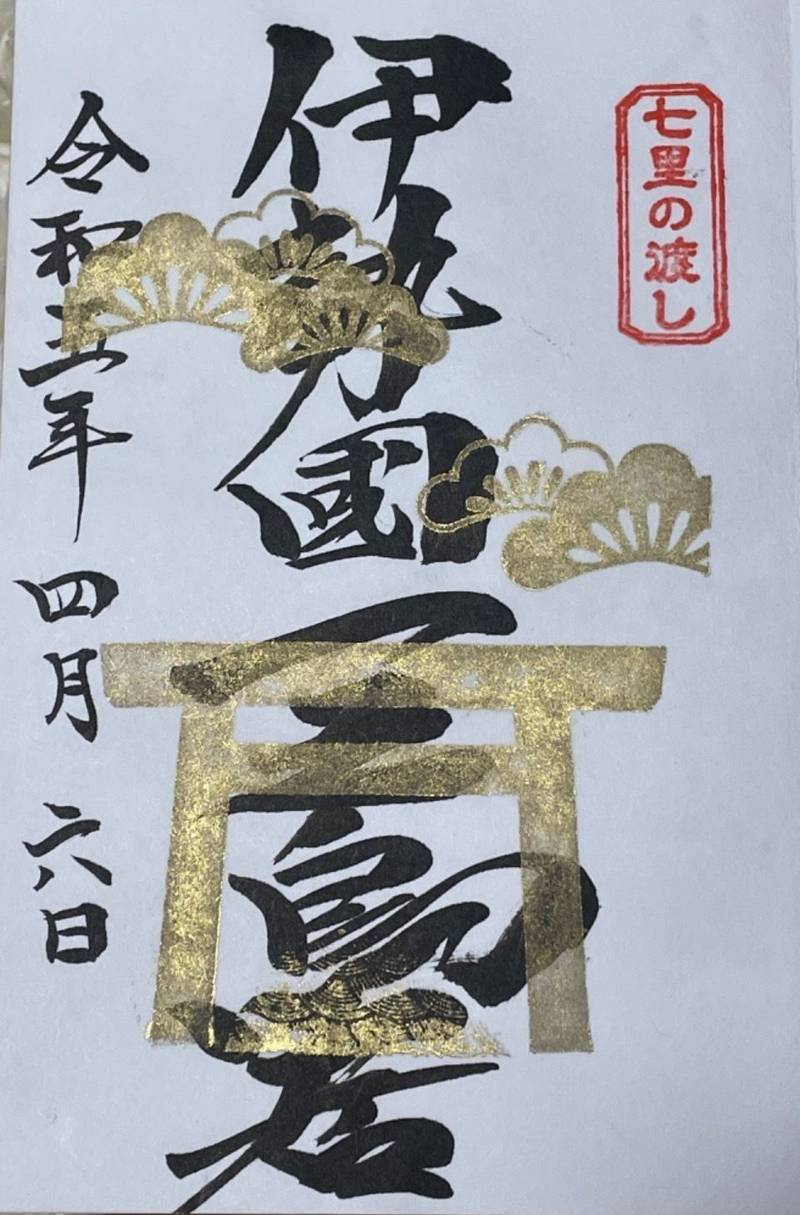 七里の渡し
伊勢国一之鳥居
令和五年四月六日